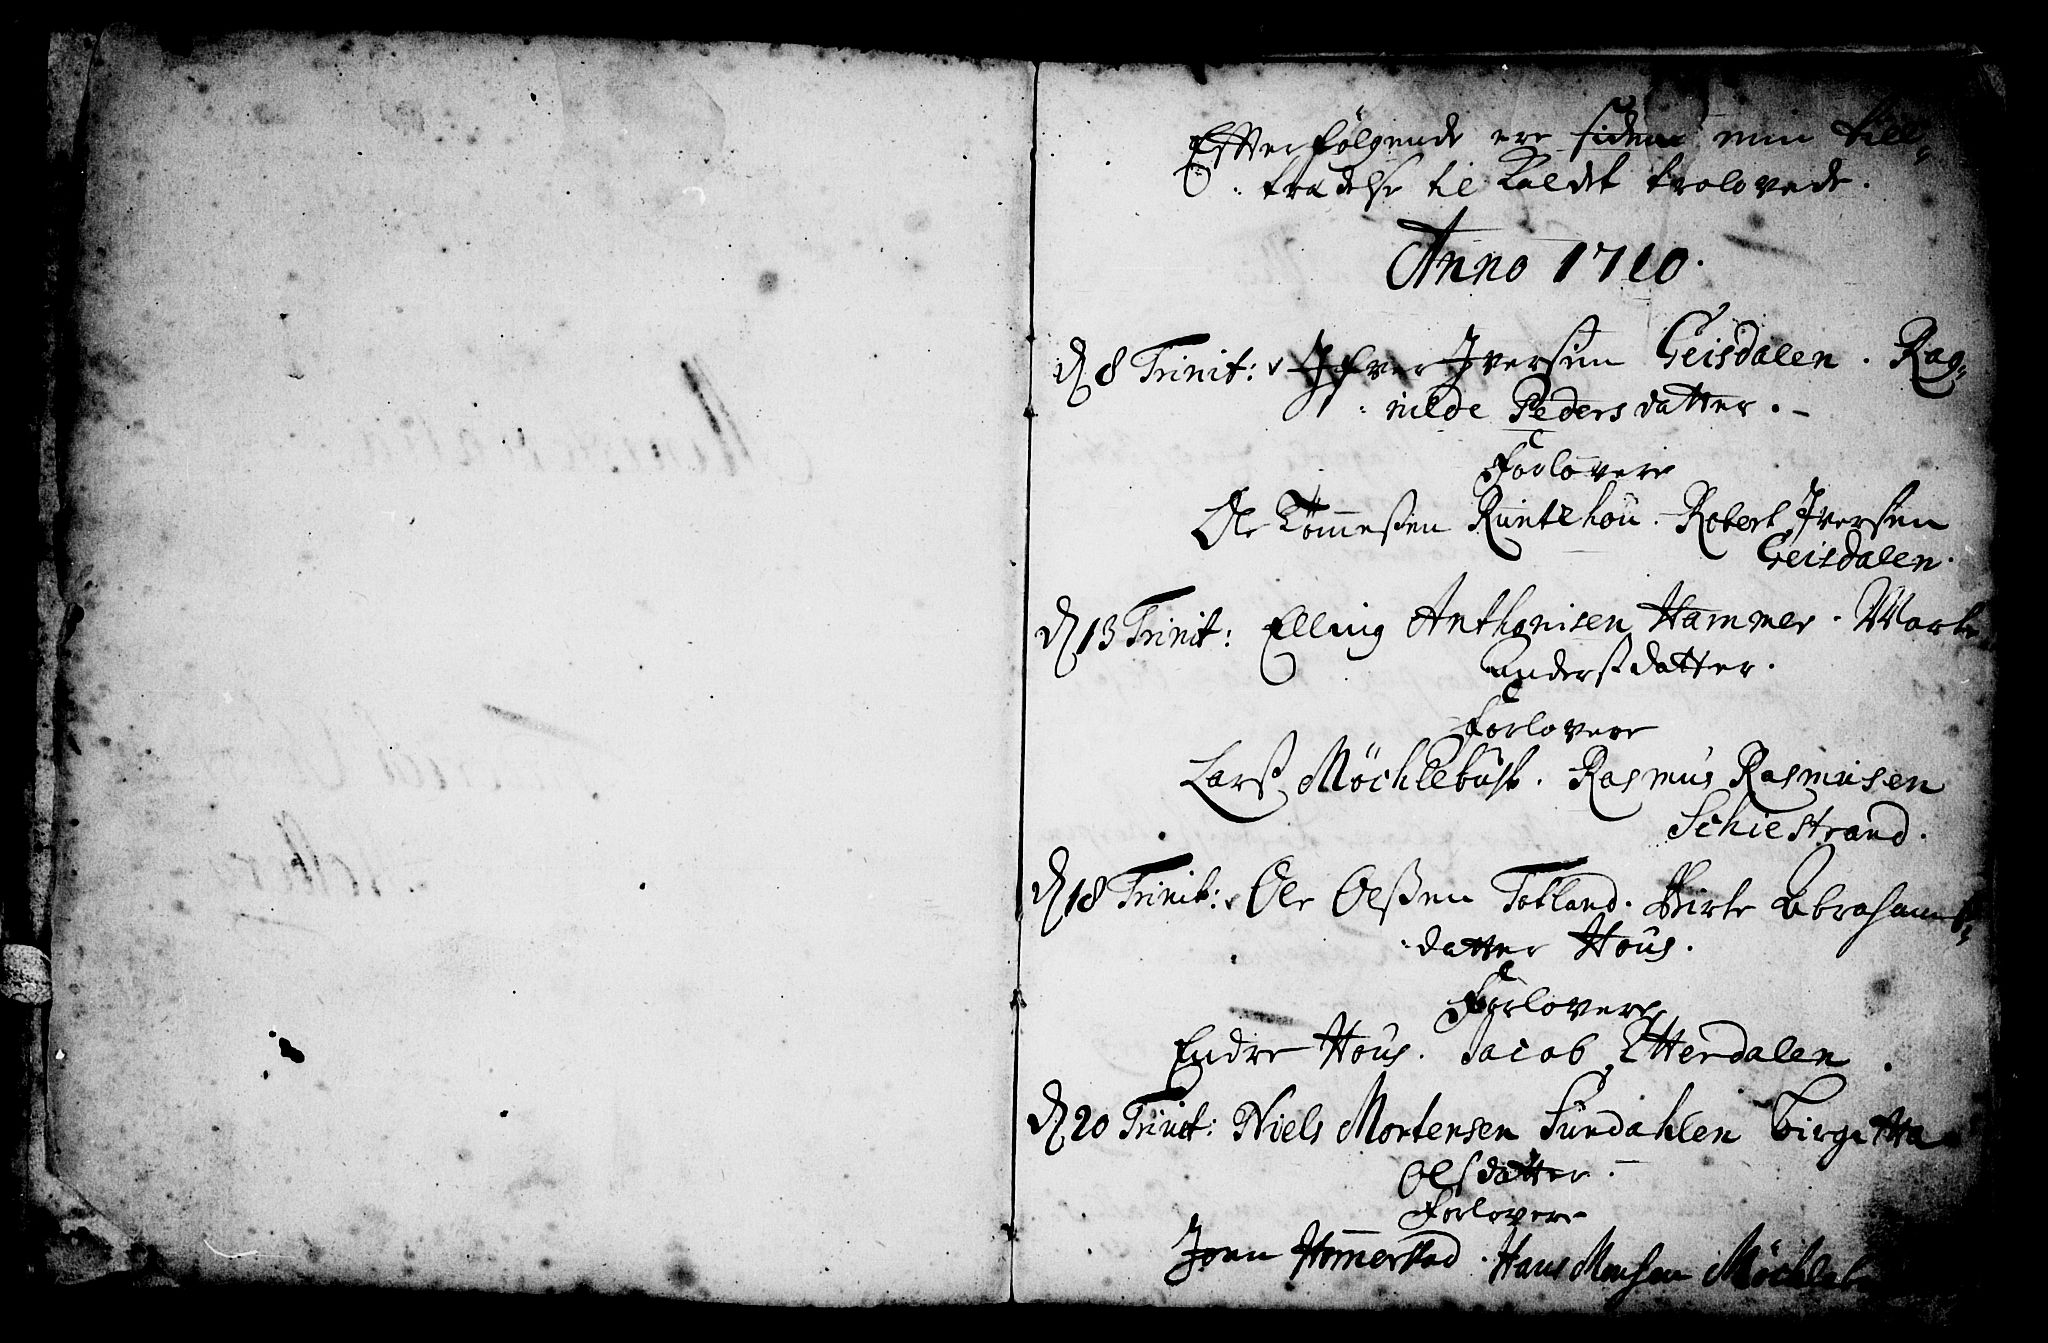 Effterfølgende ere siden min till-
trædelse til Kaldet trolovede.
Anno 1710.
D 8 Trinit: Ifver Iversen Geisdalen. Rag-
nilde Pedersdatter.
Forlovere
Ole Tommeßen Runtehou. Robert Iversen
Geisdalen.
D 13 Trinit: Elling Anthonisen Hammer. Marte
Andersdatter.
Forlovere
Larß Möchlebust. Rasmus Rasmusen
Schiestrand.
D 18 Trinit: Ole Olßen Totland. Birte Abrahams-
datter Hous.
Forlovere
Endre Hous. Jacob Ytterdalen.
D 20 Trinit: Niels Mortensen Surdahlen Birgitta
Olsdatter.
Forlovere
Joen Hommerstad. Hans Monsen